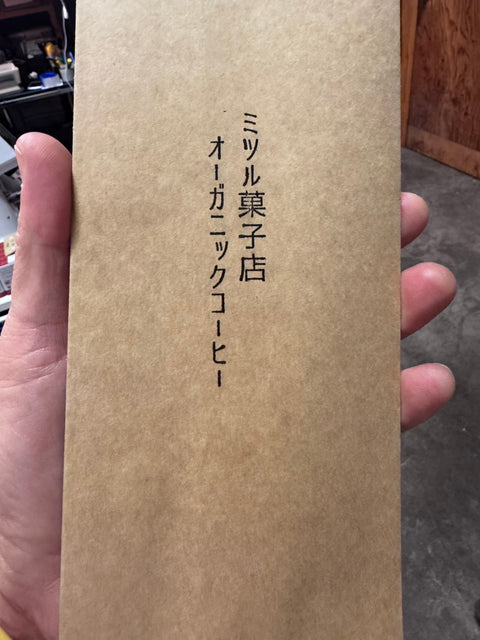 ミツル菓子店
オーガニックコーヒー